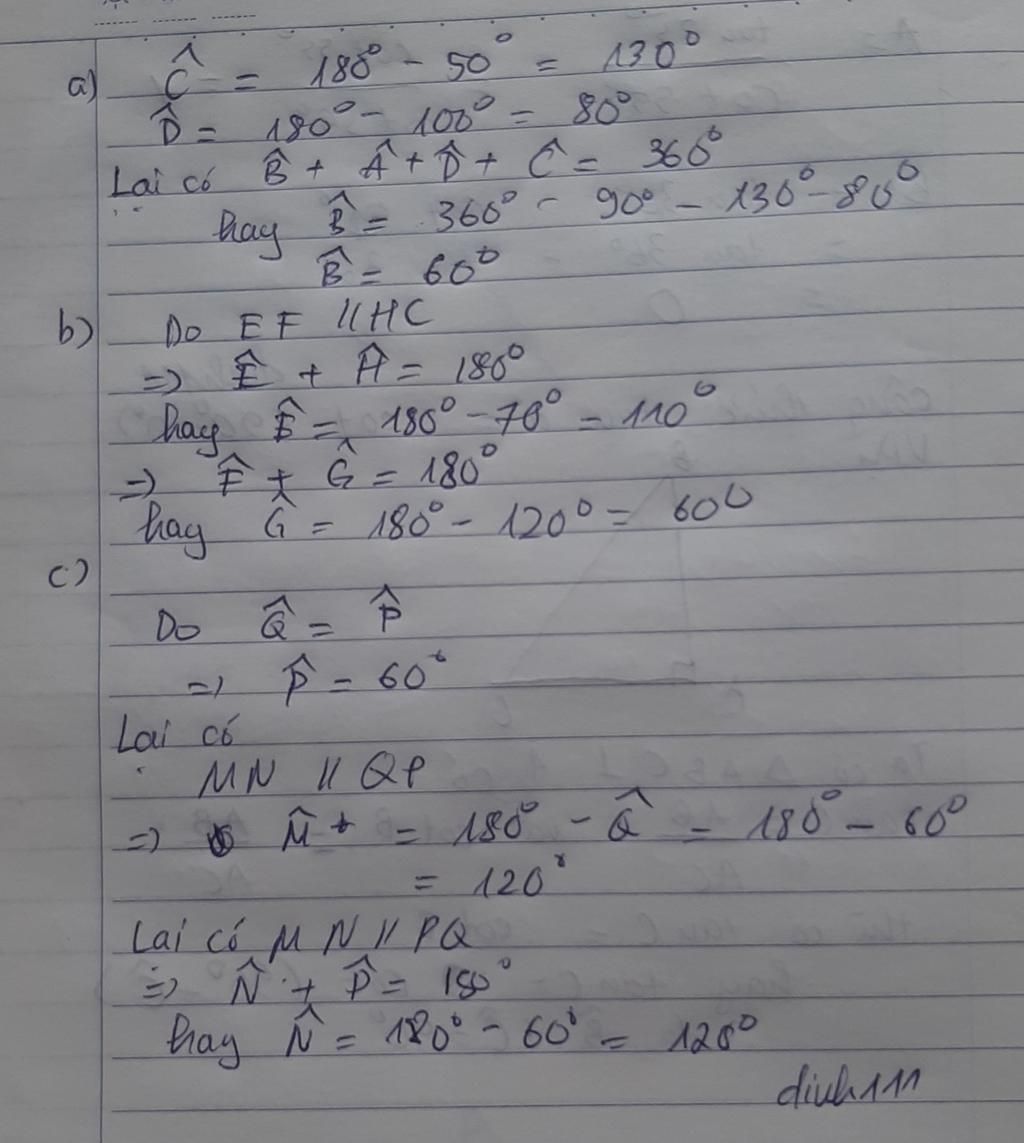 a) Ĉ = 180° - 50° = 130°
D̂ = 180° - 100° = 80°
Lại có B̂ + Â + D̂ + Ĉ = 360°
hay B̂ = 360° - 90° - 130° - 80°
B̂ = 60°
b) Do EF // HC
=> Ê + Ĥ = 180°
hay Ê = 180° - 70° = 110°
=> F̂ + Ĝ = 180°
hay Ĝ = 180° - 120° = 60°
c)
Do Q̂ = P̂
=> P̂ = 60°
Lại có
MN // QP
=> M̂ = 180° - Q̂ = 180° - 60°
= 120°
Lại có MN // PQ
=> N̂ + P̂ = 180°
hay N̂ = 180° - 60° = 120°
dinh111